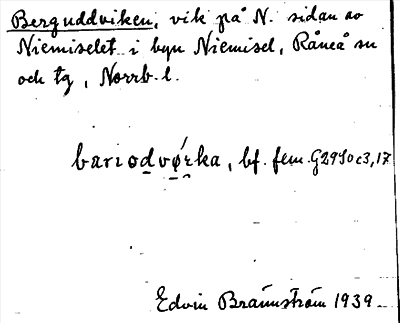 Berguddviken, vik på N. sidan av
Niemiselet i byn Niemisel, Råneå sn
och tg, Norrb. l.
bf. fem. G2950c3,17
Edvin Brännström 1939